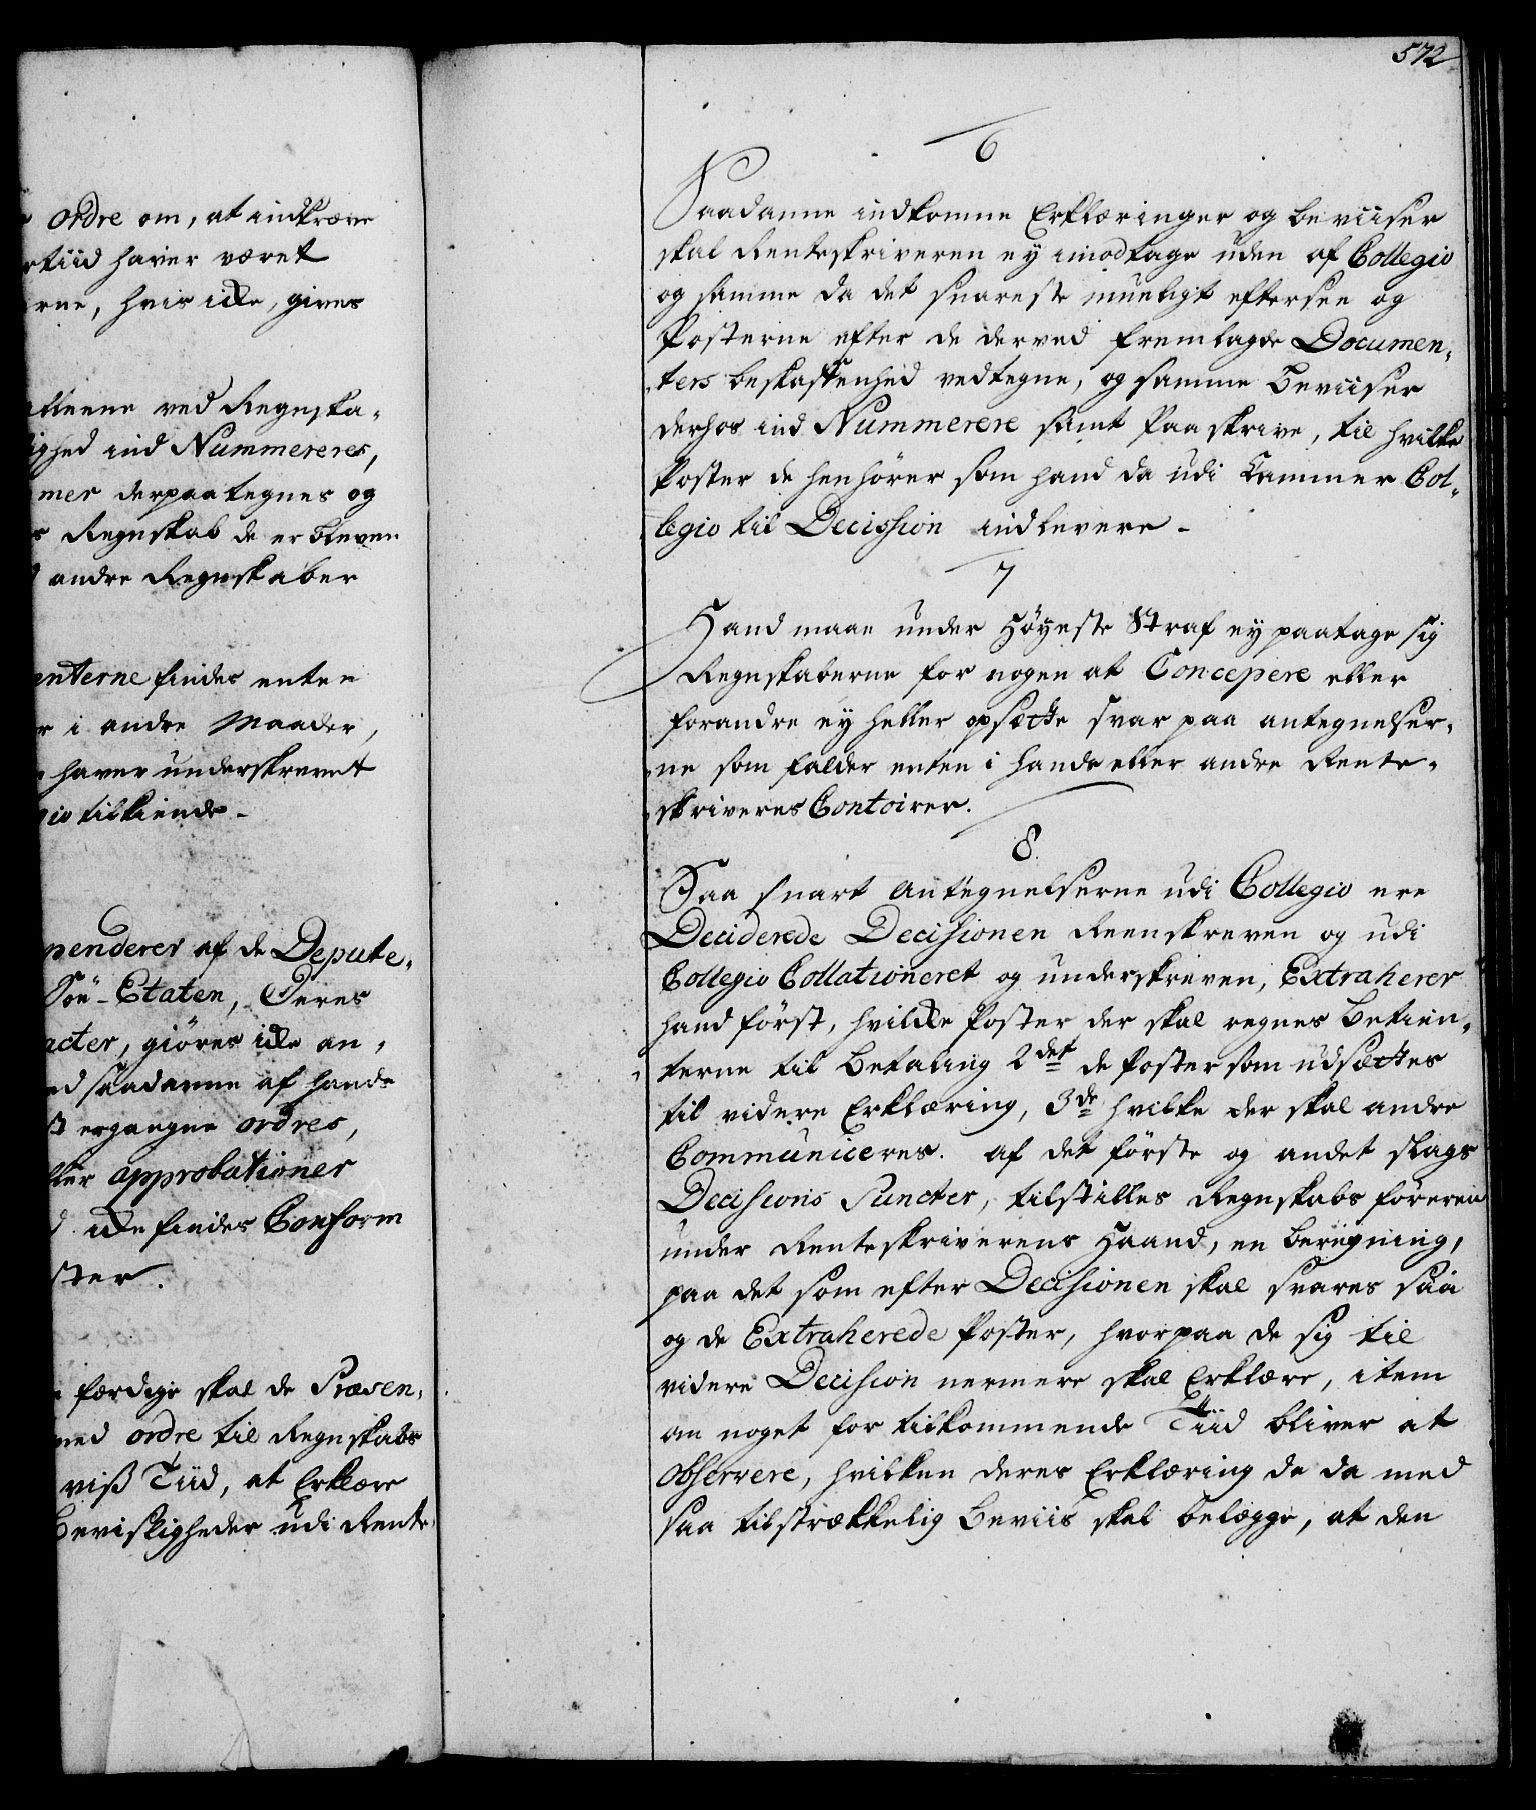 ordre om, at indkræve
tiid haver været
erne, hvis icke, gives
ved Regnska-
ighed ind Nummereres,
mer derpaategnes og
Regnskab de er bleven
andre Regnskaber
enterne findes enten
i andre Maader,
haver underskrevet
tilkiende.
penderer af de Depute-
Söe-Etaten, Deres
acter, giöres icke an-
saadanne af hands
ergangne ordres,
approbationer
icke findes Conform
ster.
færdige skal de Præsen-
med ordre til Regnskabs
viß Tiid, at Erklære
Bevisligheder udi Rente-
572
6
Saadanne indkomne Erklæringer og beviiser
skal Renteskriveren ey imodtage uden af Collegio
og samme da det snareste mueligt eftersee og
Posterne efter de derved fremlagde Documen-
ters beskaffenhed vedtegne, og samme Beviiser
derhos ind Nummerere samt Paaskrive, til hvilke
Poster de henhörer som hand da udi Cammer Col-
legio til Decission indlevere.
7
Hand maae under Höyeste Straf ey paatage sig
Regnskaberne for nogen at Concepere eller
forandre ey heller opsætte svar paa antegnelser-
ne som falder enten i hands eller andre Rente-
skriveres Contoirer.
8.
Saa snart Antegnelserne udi Collegio ere
Deciderede Decisionen Reenskreven og udi
Collegio Collationeret og underskreven, Extraherer
hand först, hvilcke Poster der skal regnes Betien-
terne til Betaling 2det de Poster som udsættes
til videre Erklæring, 3de hvilke der skal andre
Communiceres. af det förste og andet slags
Decisions Puncter, tilstilles Regnskabs föreren
under Renteskriverens Haand, en Beregning,
paa det som efter Decisionen skal svares saa
og de Extraherede Poster, hvorpaa de sig til
videre Decision nermere skal Erklære, item
om noget for tilkommende Tiid bliver at
observere, hvilken deres Erklæring de da med
saa tilstrækkelig Beviis skal belægge, at den